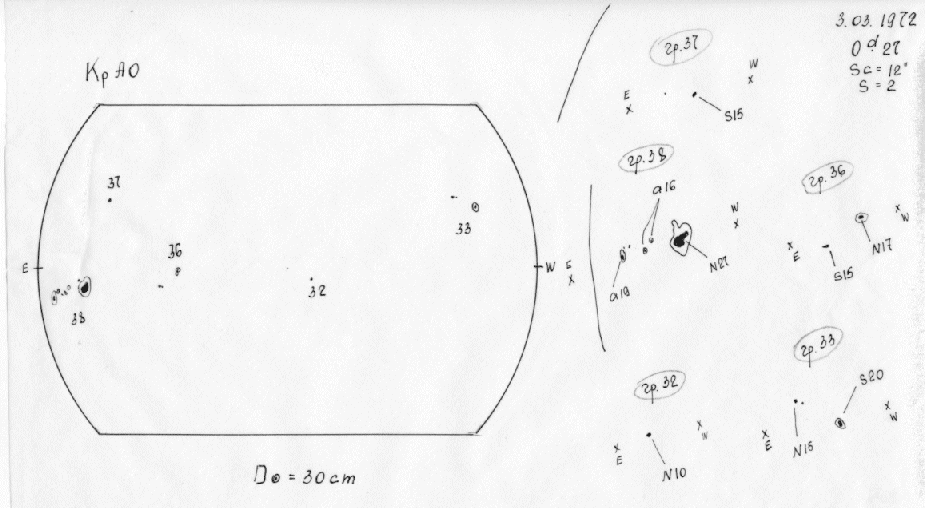 3.03.1972
0ᵈ 27
Sc = 12"
S = 2
Кр АО
37
36
33
32
38
E
W
D⊙ = 30 cm
гр.37
E
x
W
x
S15
гр.38
a16
W
x
E
x
N27
a19
гр.36
x
W
N17
x
E
S15
гр.32
x
W
x
E
N10
гр.33
S20
x
W
x
E
N15